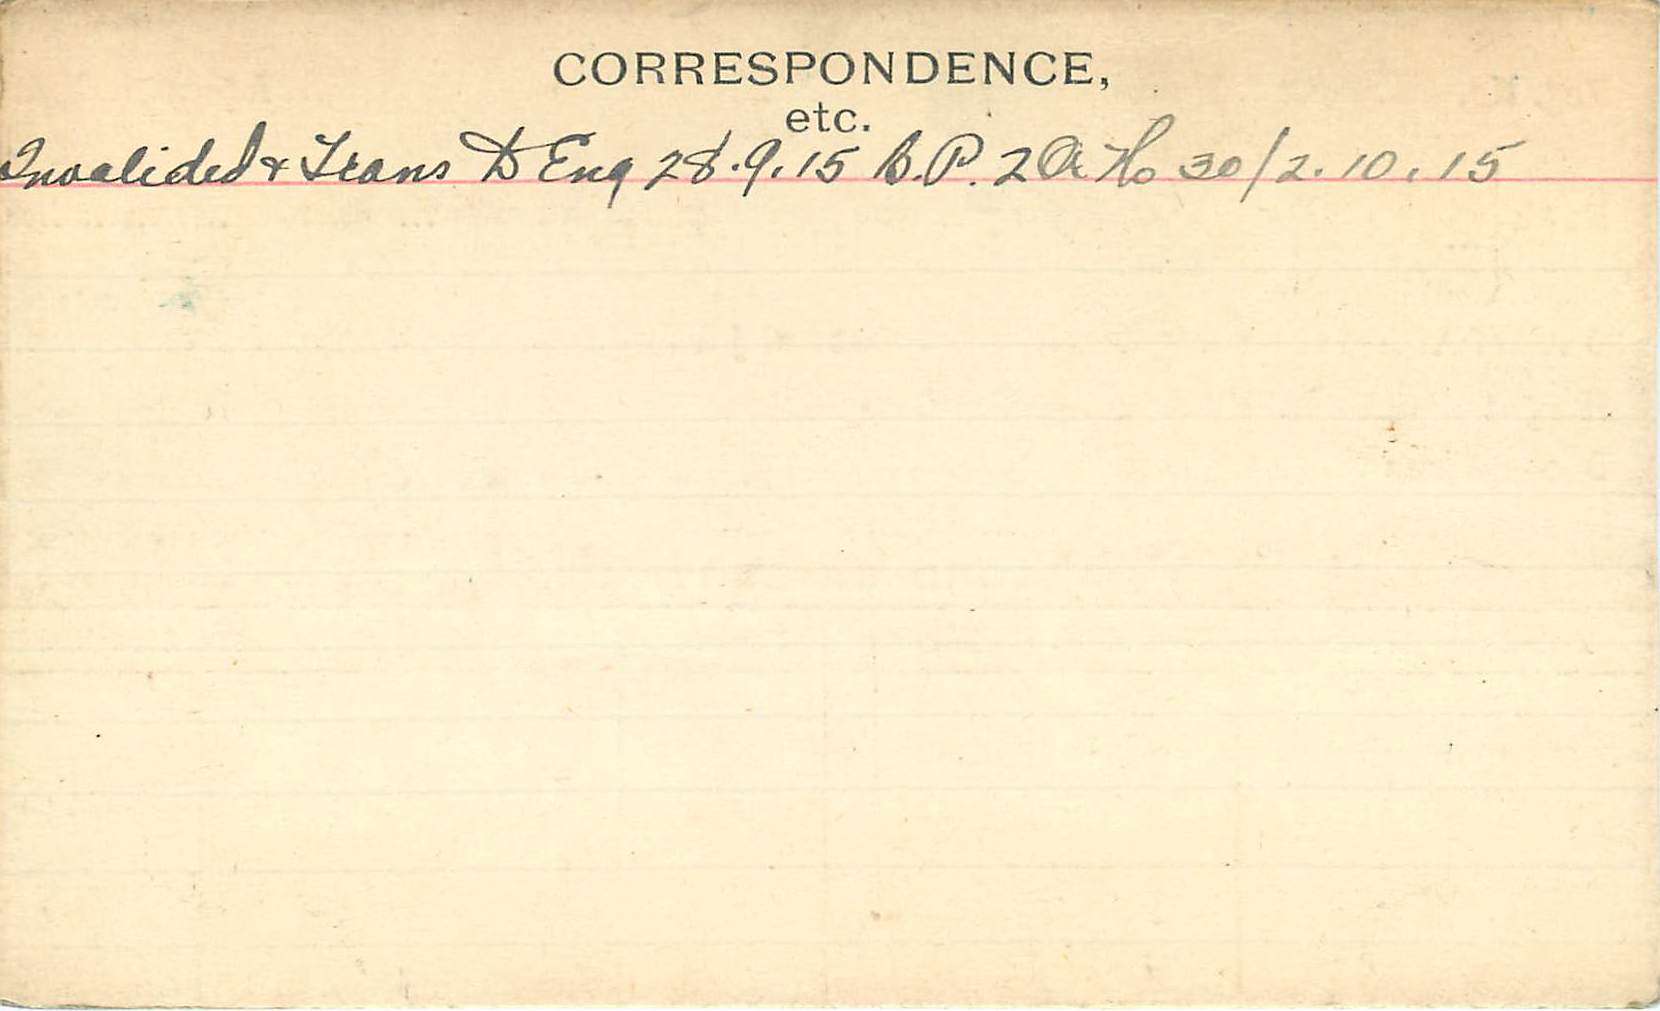 CORRESPONDENCE,
etc.
Invalided & Trans to Eng 28.9.15 B.P. 2 A Ho 30/2.10.15